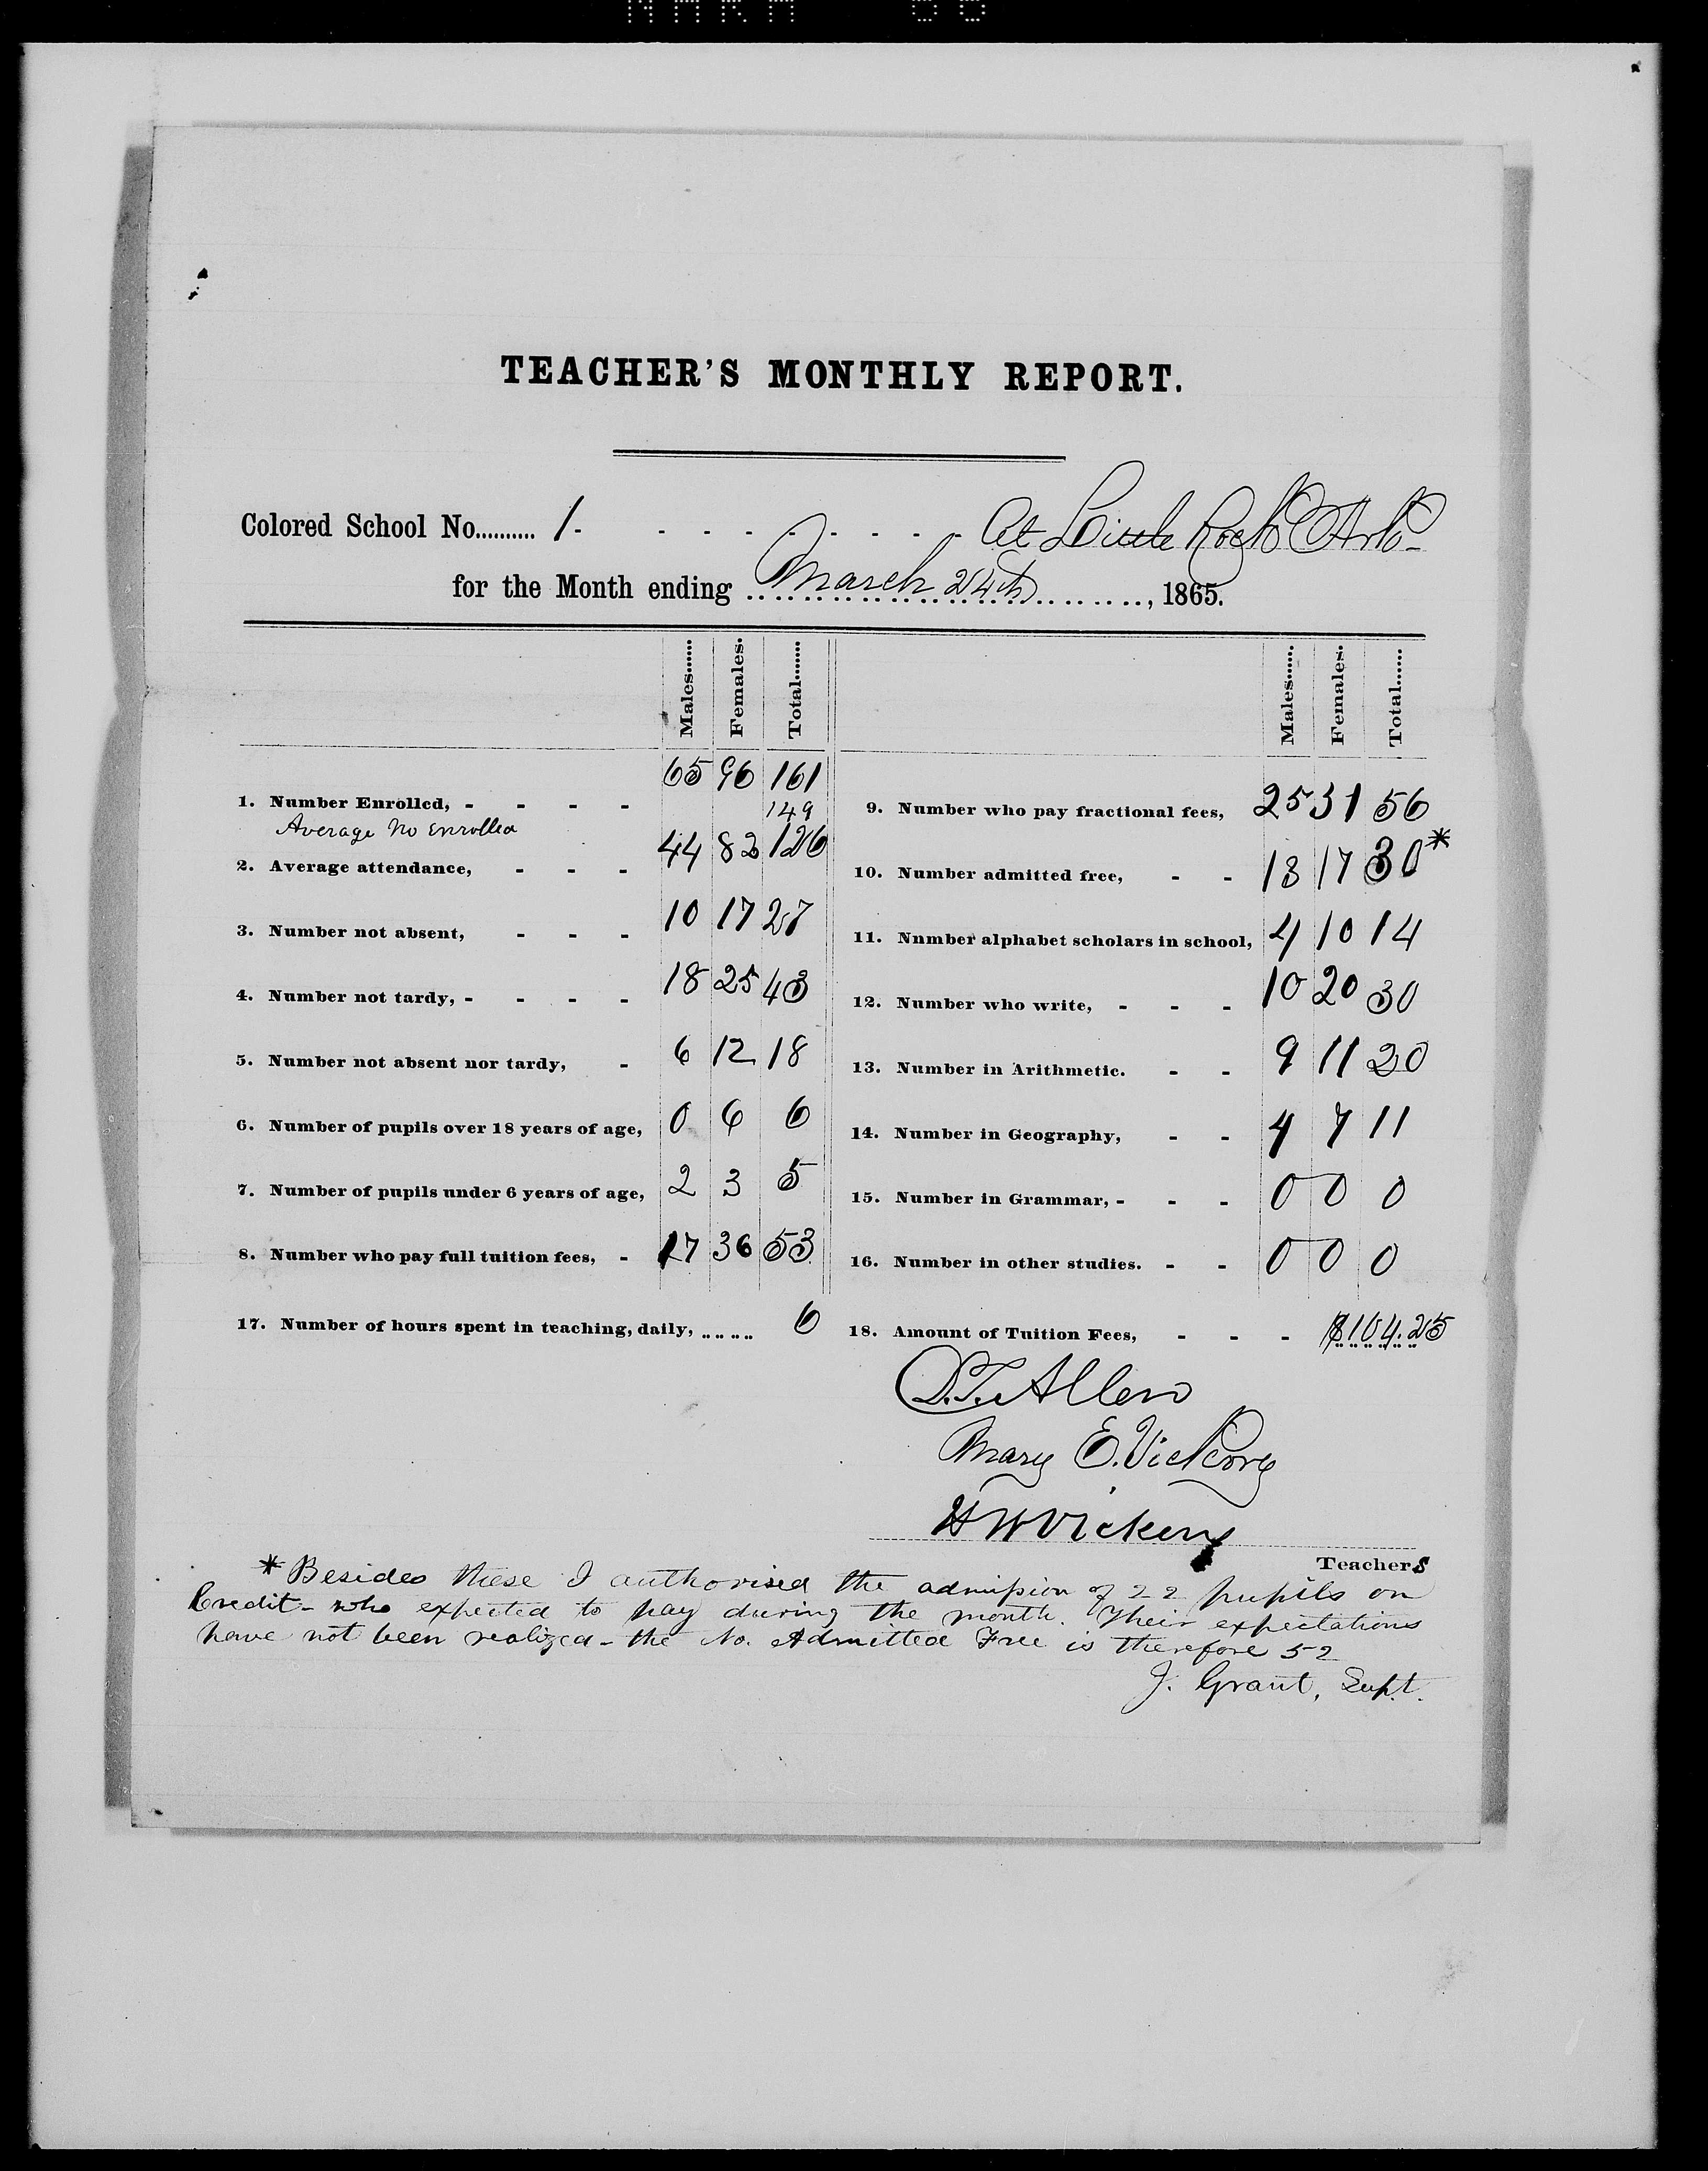 TEACHER'S MONTHLY REPORT.
Colored School No.......... 1. - - - - - - - - At Little Rock Ark-
for the Month ending March 24th, 1865.
Males...... Females. Total......
Males...... Females. Total......
1. Number Enrolled, - - - - 65 96 161
Average No Enrolled 149
2. Average attendance, - - - 44 82 126
3. Number not absent, - - - 10 17 27
4. Number not tardy, - - - - 18 25 43
5. Number not absent nor tardy, - 6 12 18
6. Number of pupils over 18 years of age, 0 6 6
7. Number of pupils under 6 years of age, 2 3 5
8. Number who pay full tuition fees, - 17 36 53
9. Number who pay fractional fees, 25 31 56
10. Number admitted free, - - 13 17 30*
11. Nnmber alphabet scholars in school, 4 10 14
12. Number who write, - - - 10 20 30
13. Number in Arithmetic. - - 9 11 20
14. Number in Geography, - - 4 7 11
15. Number in Grammar, - - - 0 0 0
16. Number in other studies. - - 0 0 0
17. Number of hours spent in teaching, daily, ........ 6
18. Amount of Tuition Fees, - - - $104.25
D.T. Allen
Mary E. Vickery
H W Vickery
Teachers
* Besides these I authorised the admission of 22 pupils on
Credit - who expected to pay during the month. Their expectations
have not been realized - the No. Admitted Free is therefore 52
J. Grant, Supt.